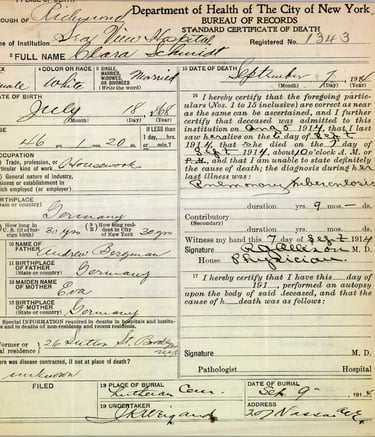 OROUGH OF Richmond
Department of Health of The City of New York
BUREAU OF RECORDS
STANDARD CERTIFICATE OF DEATH
me of Institution Sea View Hospital Registered No. 1343
2 FULL NAME Clara Schmidt
4 COLOR OR RACE
White
5 SINGLE,
MARRIED,
WIDOWED,
OR DIVORCED
(Write the word)
Married
15 DATE OF DEATH
September 7 1914
(Month) (Day) (Year)
DATE OF BIRTH
July 18 1868
(Month) (Day) (Year)
46 20
If LESS than
1 day,
hrs.
or min.?
OCCUPATION
Trade, profession, or
particular kind of work Housework
General nature of industry,
business or establishment in
which employed (or employer)
BIRTHPLACE
Germany
How long in
U. S. (if of for-
eign birth) 30 yrs
How long resi-
dent in City
of New York 30 yrs
10 NAME OF
FATHER Andrew Bergman
11 BIRTHPLACE
OF FATHER Germany
12 MAIDEN NAME
OF MOTHER Eva
OF MOTHER Germany
Special INFORMATION required in deaths in hospitals and institu-
tions and in deaths of non-residents and recent residents.
Former or
usual residence 26 Sutton St.
Where was disease contracted, if not at place of death?
unknown
FILED
16 I hereby certify that the foregoing particu-
lars (Nos. 1 to 15 inclusive) are correct as near
as the same can be ascertained, and I further
certify that deceased was admitted to this
institution on Aug 5 1914, that I last
saw her alive on the 6 day of Sept
1914, that she died on the 7 day of
Sept 1914, about 10 o'clock A. M. or
P. M., and that I am unable to state definitely
the cause of death; the diagnosis during her
last illness was:
Pulmonary tuberculosis
duration yrs. 9 mos. ds.
Contributory
(Secondary)
duration yrs. mos. ds.
Witness my hand this 7 day of Sept 1914
Signature M. D.
House Physician
17 I hereby certify that I have this day of
191 , performed an autopsy
upon the body of said deceased, and that the
cause of h death was as follows:
Signature M. D.
Pathologist Hospital
18 PLACE OF BURIAL
Lutheran Cem.
DATE OF BURIAL
Sept 9 1914
19 UNDERTAKER
ADDRESS
207 Nassau Ave